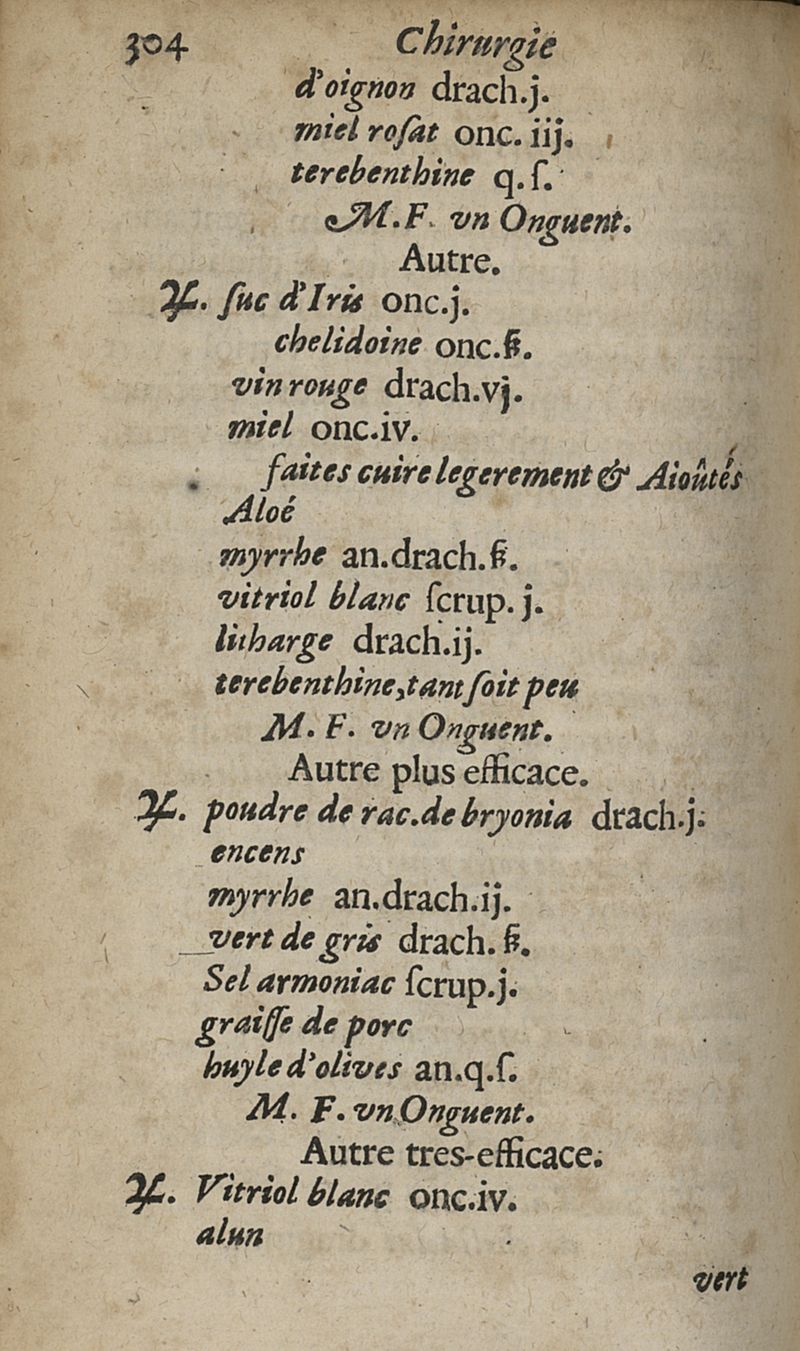 304 Chirurgie
d'oignon drach.j.
miel roſat onc. iij.
terebenthine q. ſ.
M.F. vn Onguent.
Autre.
℞. ſuc d'Iris onc.j.
chelidoine onc.ß.
vin rouge drach.vj.
miel onc.iv.
faites cuire legerement & Aioûtés
Aloé
myrrhe an.drach.ß.
vitriol blanc ſcrup. j.
litharge drach.ij.
terebenthine,tant ſoit peu
M. F. vn Onguent.
Autre plus efficace.
℞. poudre de rac.de bryonia drach.j.
encens
myrrhe an.drach.ij.
vert de gris drach. ß.
Sel armoniac ſcrup.j.
graiſſe de porc
huyle d'olives an.q.ſ.
M. F. vn Onguent.
Autre tres-efficace.
℞. Vitriol blanc onc.iv.
alun
vert